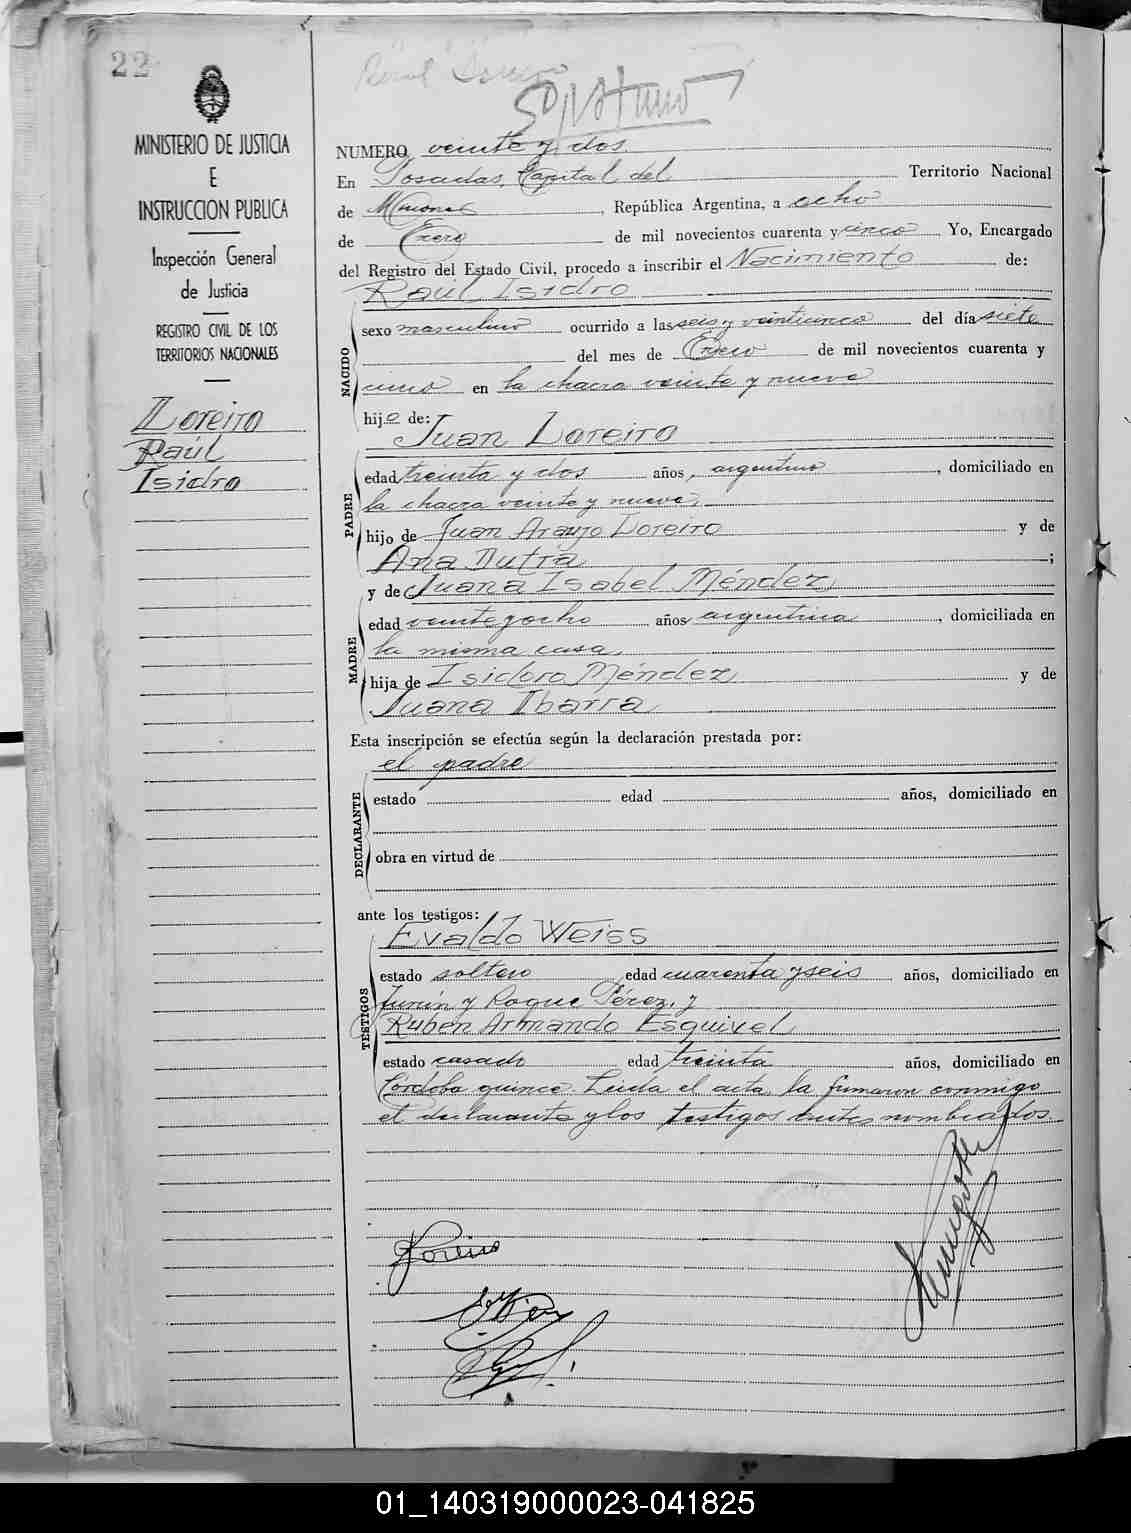 22
MINISTERIO DE JUSTICIA
E
INSTRUCCION PUBLICA
Inspección General
de Justicia
REGISTRO CIVIL DE LOS
TERRITORIOS NACIONALES
Loreiro
Raúl
Isidro
NUMERO veinte y dos.
En Posadas, Capital del Territorio Nacional
de Misiones, República Argentina, a ocho
de Enero de mil novecientos cuarenta y cinco Yo, Encargado
del Registro del Estado Civil, procedo a inscribir el Nacimiento de:
Raúl Isidro
NACIDO
sexo masculino ocurrido a las seis y veinticinco del día siete
del mes de Enero de mil novecientos cuarenta y
cinco en la chacra veinte y nueve
hijo de:
Juan Loreiro
PADRE
edad treinta y dos años, argentino, domiciliado en
la chacra veinte y nueve,
hijo de Juan Araujo Loreiro y de
Ana Dutra ;
y de Juana Isabel Méndez,
MADRE
edad veinte y ocho años argentina, domiciliada en
la misma casa,
hija de Isidoro Méndez, y de
Juana Ibarra
Esta inscripción se efectúa según la declaración prestada por:
el padre
DECLARANTE
estado edad años, domiciliado en
obra en virtud de
ante los testigos:
Evaldo Weiss
TESTIGOS
estado soltero edad cuarenta y seis años, domiciliado en
Junín y Roque Pérez, y
Ruben Armando Esquivel
estado casado edad treinta años, domiciliado en
Córdoba quince. Leída el acta, la firmaron conmigo
el declarante y los testigos antes nombrados.
JLoreiro
01_140319000023-041825